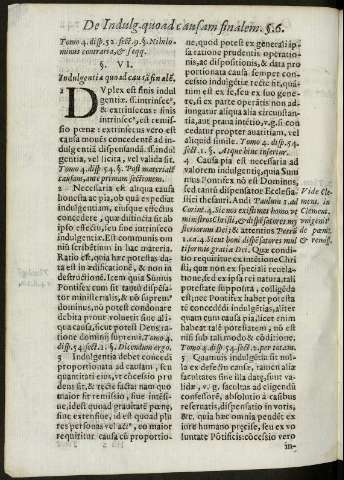 De Indulg. quoad causam finalem. §.6.
Tomo 4. disp. 52. sect. 9. §. Nihilominus contraria, & seqq.
§. VI.
Indulgentia quoad causã finalẽ.
1 DVplex est finis indulgentiæ. ss. intrinsecꝰ,
& extrinsecus: finis
intrinsecꝰ, est remissio
pœnæ: extrinsecus vero est
causa mouẽs concedentẽ ad indulgentiã
dispensandã. ss. indulgentia,
vel licita, vel valida sit.
Tomo 4. disp. 54. §. Post materialẽ
causam, ante primam sectionem.
2 Necessaria est aliqua causa
honesta ac pia, ob quã expediat
indulgentiam, eiusque effectus
concedere, quæ distincta sit ab
ipso effectu, seu fine intrinseco
indulgentiæ. Est communis omniũ
scribẽtium in hac materia.
Ratio est, quia hæc potestas data
est in ædificationẽ, & non in
destructionẽ. Item quia Sumus
Pontifex cum sit tantũ dispẽsator
ministerialis, & nõ supremꝰ
dominus, nõ potest condonare
debita pro mr̃ voluerit sine aliqua
causa, sicut potest Deus ratione
dominij supremi. Tomo 4.
disp. 54. sect. 1. §. Dicendum ergo.
3 Indulgentia debet concedi
proportionata ad causam, seu
quantitati eius, vt cõcessio prodens
sit, & recte facta: nam quo
maior fit remissio, siue intensiue,
id est quoad grauitatẽ pœnæ,
siue extensiue, id est quoad plures
personas vel actꝰ, eo maior
requiritur causa cũ proportione,
quod potest ex generali ipsa
ratione prudentis operationis,
ac dispositionis, & data proportionata
causa semper concessio
indulgẽtiæ recte fit, quãtum
est ex se, seu ex suo genere,
si ex parte operantis non adiungatur
aliqua alia circunstantia,
aut praua intẽtio, v. g. si concedatur
propter auaritiam, vel
aliquid simile. Tomo 4. disp. 54.
sect. 1. §. Atque hinc inferitur.
4 Causa pia est necessaria ad
valorem indulgentiæ, quia Sumus
Pontifex nõ est Dominus,
sed tantũ dispensator Ecclesiastici
thesauri. Audi Paulum 1. ad
Corint. 4. Sic nos existimet homo vt
ministros Christi, & dispẽsatores mysteriorum
Dei; & attentius
Sicut boni dispẽsatores multiformis
gratiæ Dei. Quæ conditio
requiritur ex intẽtione Christi,
que non ex speciali reuelatione,
sed ex ipsa rei natura, tali
potestate supposita, colligẽda
est; nec Pontifex habet potestatẽ
concedẽdi indulgẽtias, aliter
quam cum causa pia, licet enim
habeat talẽ potestatem, nõ est
nisi sub tali modo & cõditione.
Tomo 4. disp. 54. sect. 2. per totam.
5 Quamuis indulgẽtia sit nulla
ex defectu causæ, tamen aliæ
facultates sine illa datæ, sunt validæ,
v. g. facultas ad eligendũ
confessorẽ, absolutio à casibus
reseruatis, dispensatio in votis,
&c. quia hæc omnia pendẽt ex
iure humano præcise, seu ex voluntate
Põtificis: cõcessio vero
in-
Vide Clement. in
Clement.
vnigenit.
de pœnit.
& remiss.